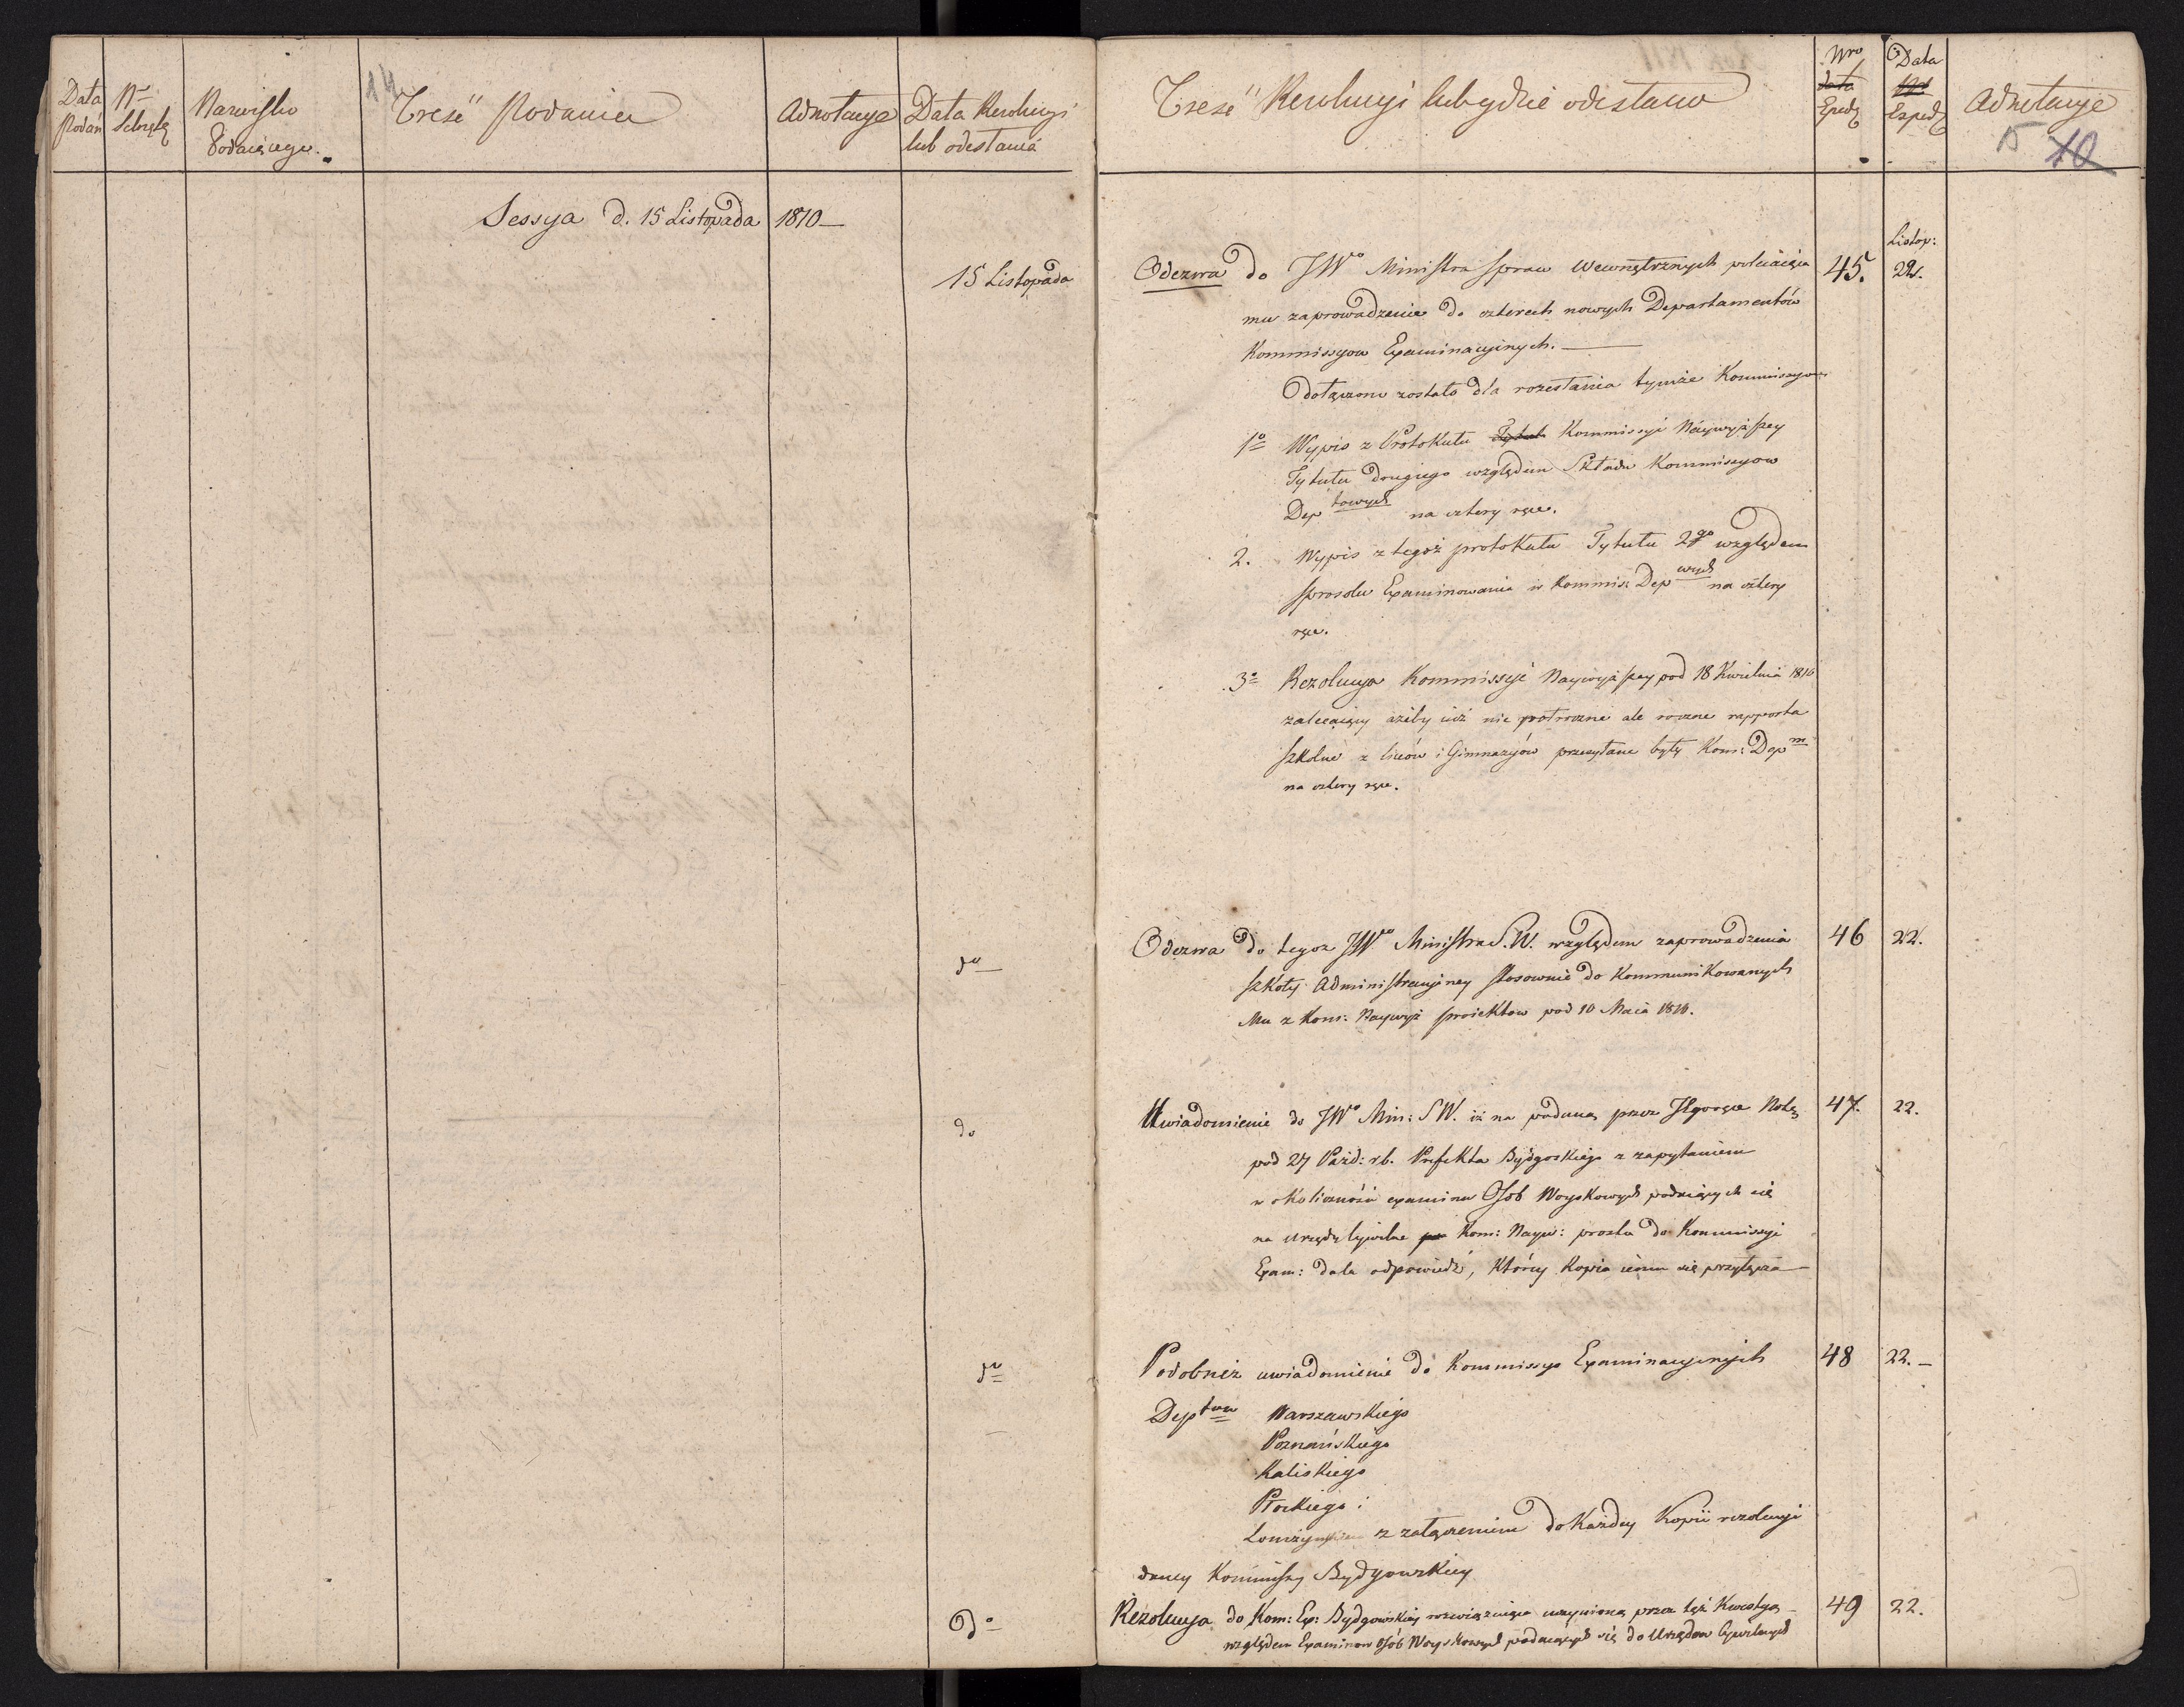 Data Podań
Nr Sebrytę
Nazwisko Podaiącego.
14
Treść Podania
Adnotacya
Data Rezolucyi lub odesłania
Sessya d. 15 Listopada 1810 —
15 Listopada
do
do
do
do
Treść Rezolucyi lub gdzie odesłano
Nro
Data
Exped
Adnotacye
15 10
Listop:
Odezwa do JWo Ministra spraw Wewnętrznych polecaiąca 45. 22.
mu zaprowadzenie do czterech nowych Departamentów
Kommissyow Examinacyinych. —
Dołączono zostało dla rozesłania tymże Kommissyom
1o Wypis z Protokułu Tytuł Kommissyi Naywyższey
Tytułu drugiego względem Składu Kommissyow
Deptowych na cztery ręce.
2. Wypis z tegoż protokułu Tytułu 2go względem
sposobu Examinowania w Kommis: Depwych na cztery
ręce.
3o Rezolucya Kommissyi Naywyższey pod 18 Kwietnia 1810
zalecaiący ażeby iuż nie półroczne ale roczne rapporta
szkolne z liceów i Gimnazyów przesyłane były Kom: Depm
na cztery ręce.
Odezwa do tegoz JWo Ministra S. W. względem zaprowadzenia 46 22.
szkoły Administracyiney stosownie do Kommunikowanych
Mu z Kom: Naywyż proiektow pod 10 Maia 1810.
Uwiadomienie do JWo Min: S W. iż na podaną przez Notę 47. 22.
pod 27 Paźd: r.b. Prefekta Bydgoskiego z zapytaniem
w okoliczności examinu Osob Woyskowych podaiących się
na urzędy cywilne Kom: Nayw: prosto do Kommissyi
Exam: dała odpowiedź, którey kopia iemu się przyłącza —
Podobneż uwiadomienie do Kommissyo Examinacyinych 48 22. —
Deptow Warszawskiego
Poznańskiego
Kaliskiego
Płockiego i
Łomżyńskiego z załączeniem do każdey kopii rezolucyi
daney Kommissy Bydgowskiey
Rezolucya do Kom: Ex: Bydgowskiey rozwiązuiąca uczynioną przez też Kwestyą — 49 22.
względem Examinow Osób Woyskowych podaiących się do Urzędow Cywilnych